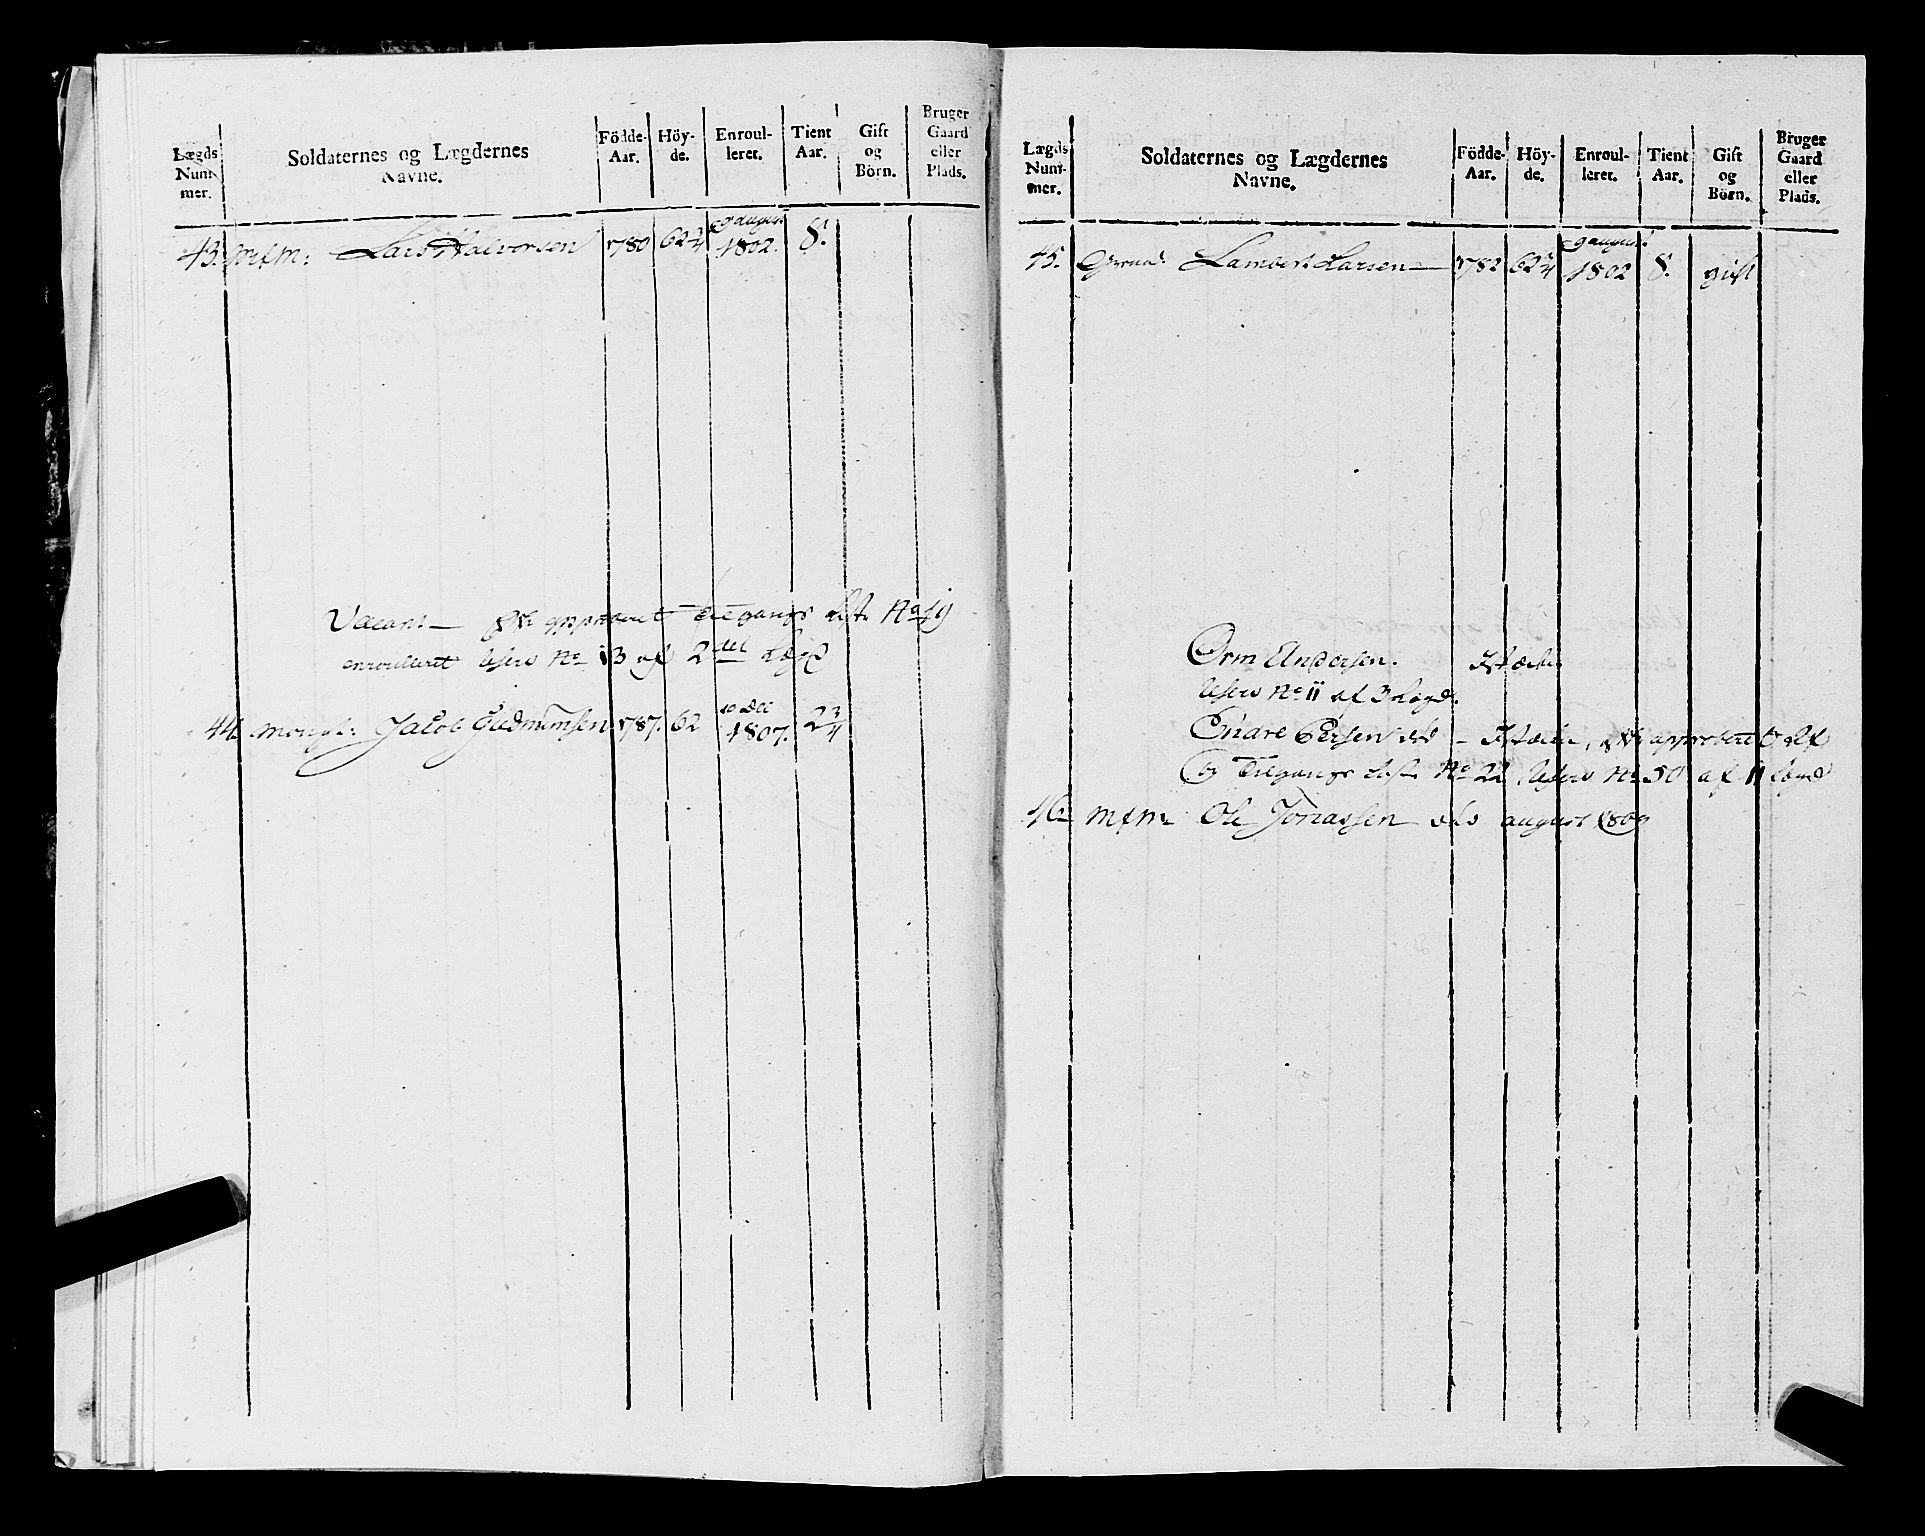 Lægds Num- mer.
Soldaternes og Lægdernes Navne.
Födde- Aar.
Höy- de.
Enroul- leret.
Tient Aar.
Gift og Börn.
Bruger Gaard eller Plads.
43. Lars Halvorsen 1780 62 3/4 1802. 8.
Vacant — approberet Tilgangs Liste No 19
enroulleret No 13 af 2det Lægd
44. Jacob Gudmunsen 1787. 62 10 Dec 1807. 2 3/4
Lægds Num- mer.
Soldaternes og Lægdernes Navne.
Födde- Aar.
Höy- de.
Enroul- leret.
Tient Aar.
Gift og Börn.
Bruger Gaard eller Plads.
45. Lambert Larsen — 1782 1802 8. gift
Orm Andersen.
No 11 af 3 Lægd.
Persen approberet
Tilgangs Liste No 22 No 50 af 11 Lægd
46 Ole Jonassen august 1809